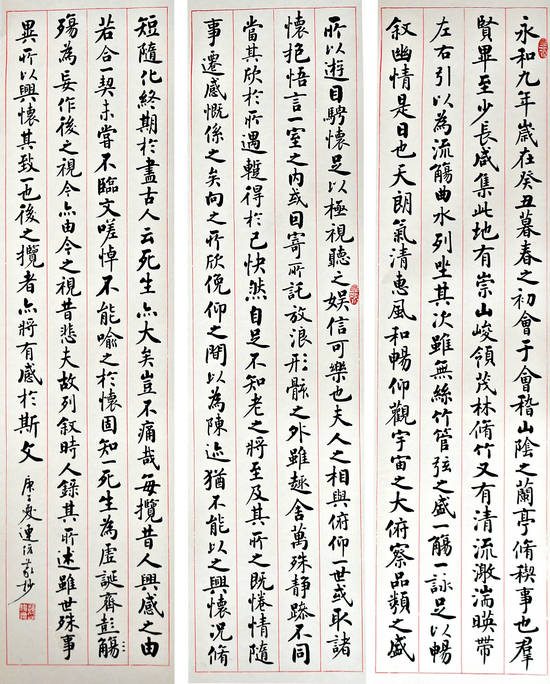 永和九年歲在癸丑暮春之初會于會稽山陰之蘭亭脩稧事也羣
賢畢至少長咸集此地有崇山峻領茂林脩竹又有清流激湍暎帶
左右引以為流觴曲水列坐其次雖無絲竹管弦之盛一觴一詠足以暢
叙幽情是日也天朗氣清惠風和暢仰觀宇宙之大俯察品類之盛
所以遊目騁懷足以極視聽之娛信可樂也夫人之相與俯仰一世或取諸
懷抱悟言一室之內或因寄所託放浪形骸之外雖趣舍萬殊静躁不同
當其欣於所遇蹔得於己快然自足不知老之將至及其所之既惓情隨
事遷感慨係之矣向之所欣俛仰之閒以為陳迹猶不能以之興懷況脩
短隨化終期於盡古人云死生亦大矣豈不痛哉每攬昔人興感之由
若合一契未嘗不臨文嗟悼不能喻之於懷固知一死生為虛誕齊彭觴
殤為妄作後之視今亦由今之視昔悲夫故列叙時人錄其所述雖世殊事
異所以興懷其致一也後之攬者亦將有感於斯文
夏連信敬抄